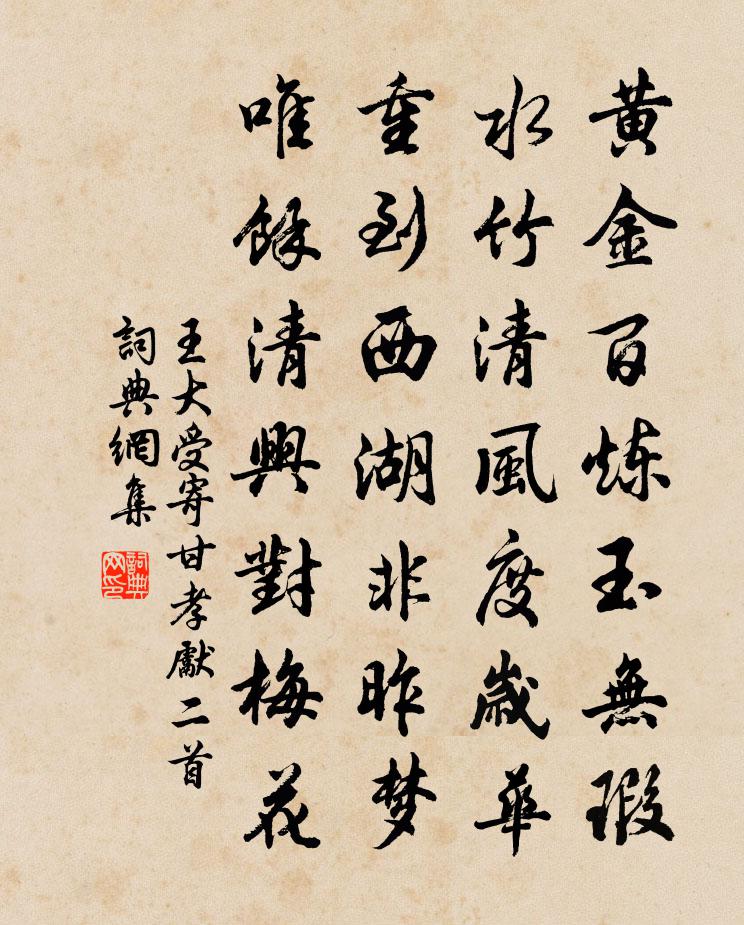 黄金百炼玉無瑕
水竹清風度歲華
重到西湖非昨梦
唯餘清興對梅花
王大受寄甘孝獻二首
詞典網集
詞典网印